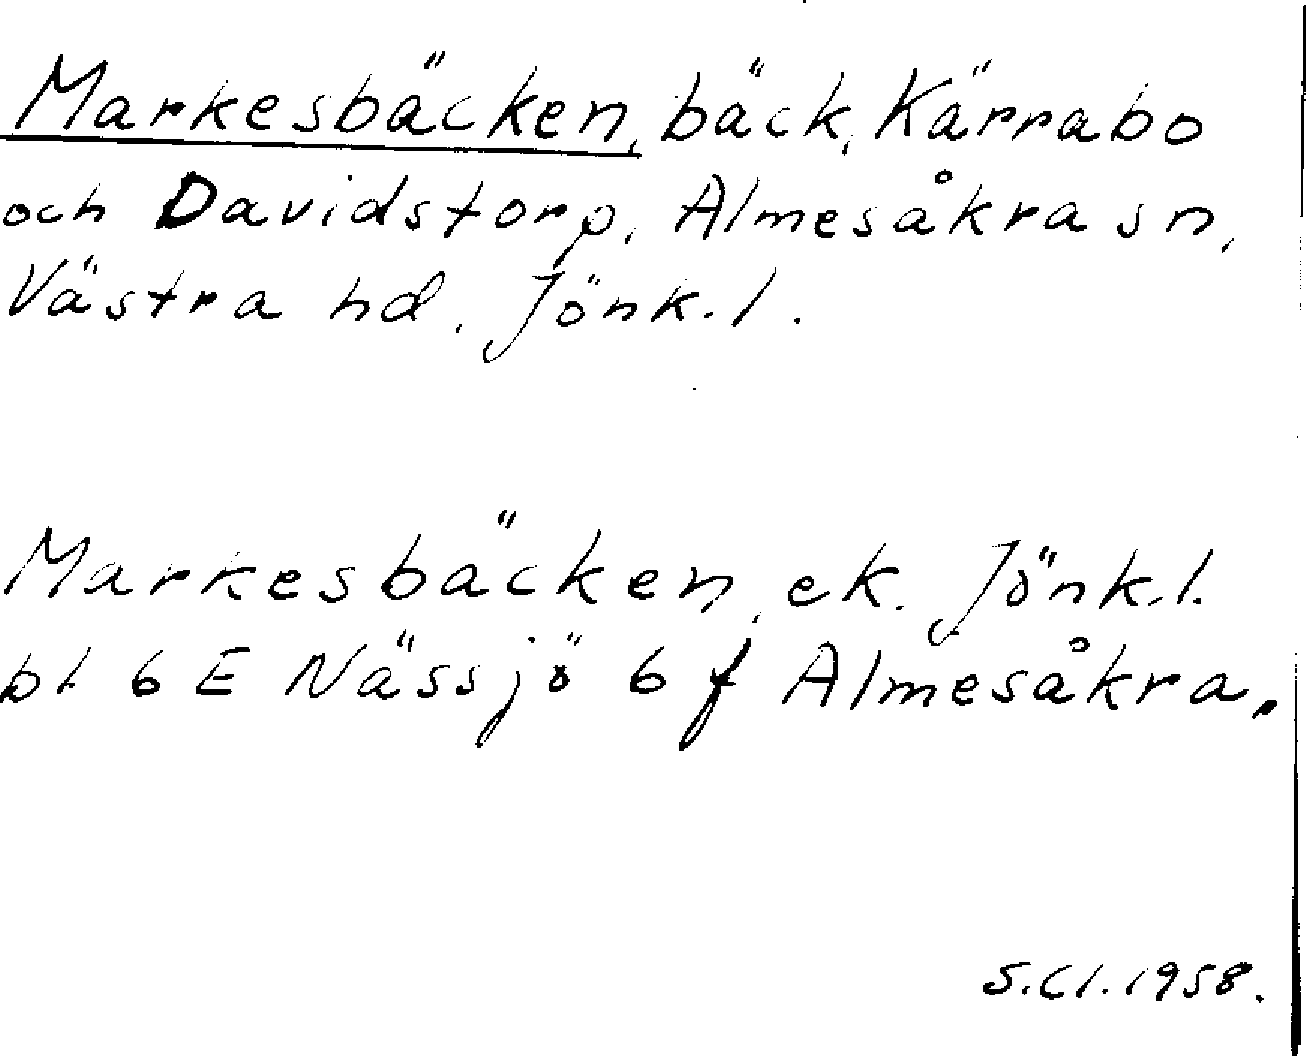 Markesbäcken, bäck, Kärrabo
och Davidstorp, Almesåkra sn,
Västra hd, Jönk.l.
Markesbäcken, ek. Jönk.l.
bl 6 E Nässjö 6 f Almesåkra.
S.Cl. 1958.